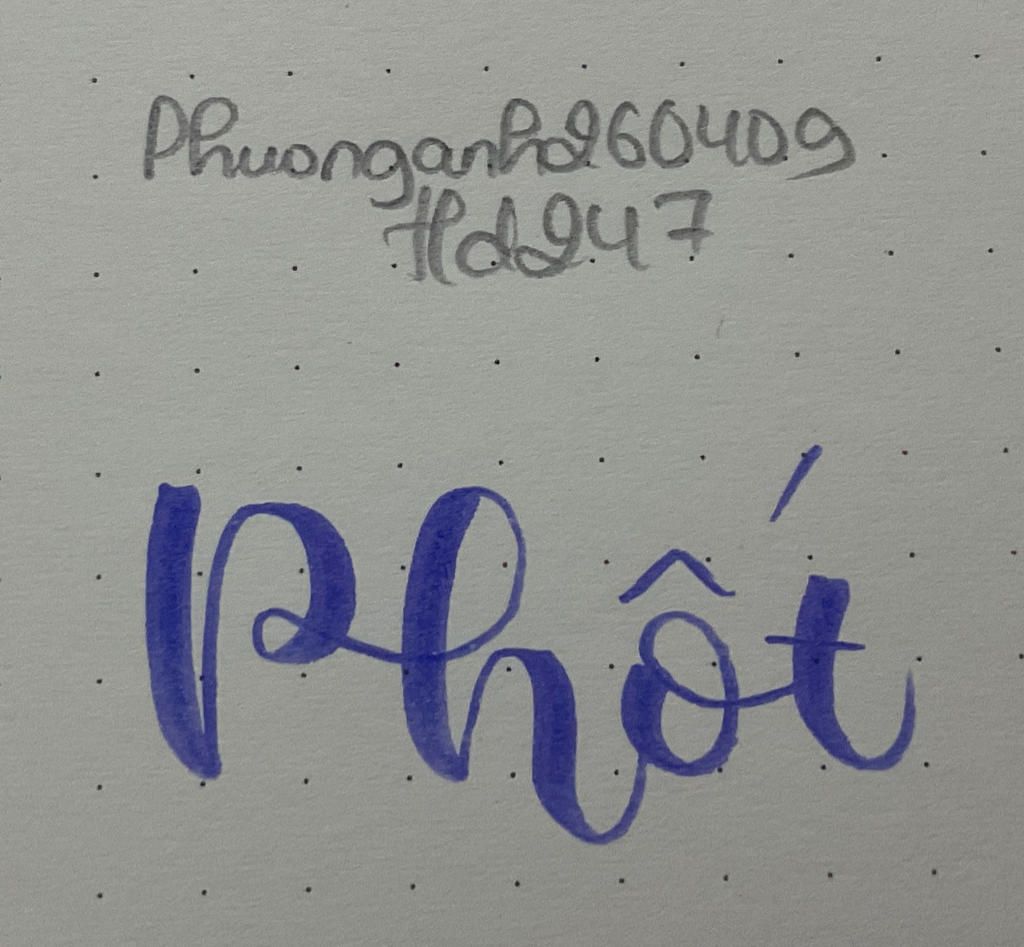 Phuonganh260409
Hd247
Phốt